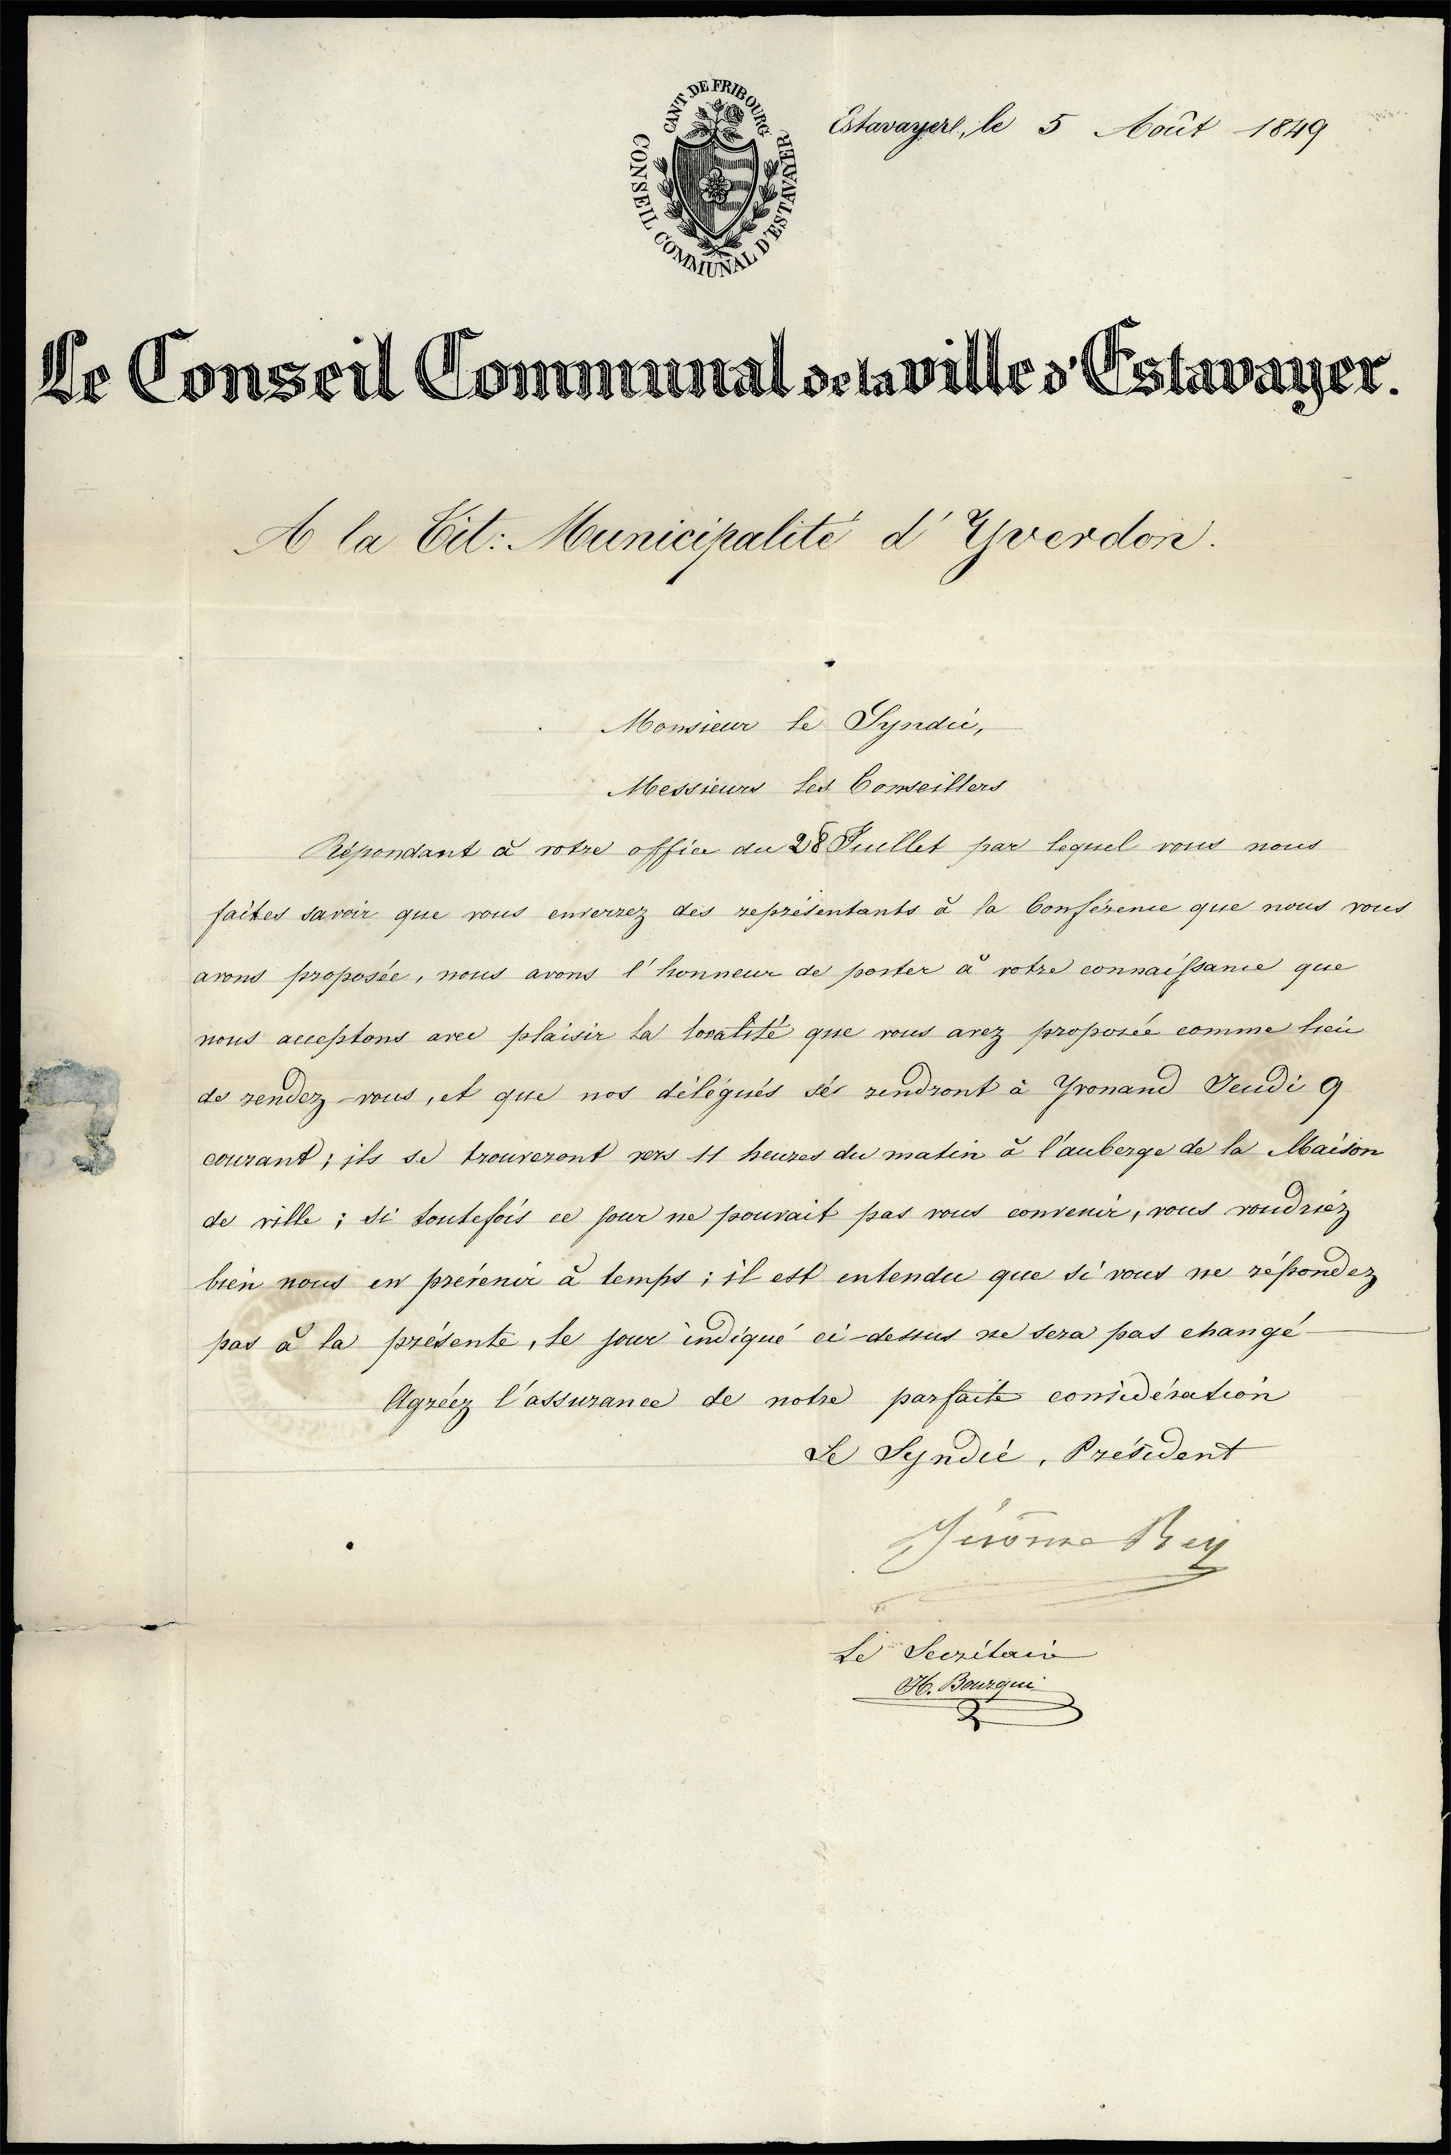 CANT. DE FRIBOURG
CONSEIL COMMUNAL D'ESTAVAYER
Estavayer, le 5 Août 1849
Le Conseil Communal de la ville d'Estavayer.
A la Tit: Municipalité d'Yverdon.
Monsieur le Syndic,
Messieurs les Conseillers
Répondant à votre office du 28 Juillet par lequel vous nous
faites savoir que vous enverrez des représentants à la Conférence que nous vous
avons proposée, nous avons l'honneur de porter à votre connaissance que
nous acceptons avec plaisir la localité que vous avez proposée comme lieu
de rendez-vous, et que nos délégués se rendront à Yvonand Jeudi 9
courant; ils se trouveront vers 11 heures du matin à l'auberge de la Maison
de ville; si toutefois ce jour ne pouvait pas vous convenir, vous voudriez
bien nous en prévenir à temps; il est entendu que si vous ne répondez
pas à la présente, le jour indiqué ci-dessus ne sera pas changé
Agréez l'assurance de notre parfaite considération
Le Syndic, Président
Jérôme Rey
Le Secrétaire
H. Bourqui